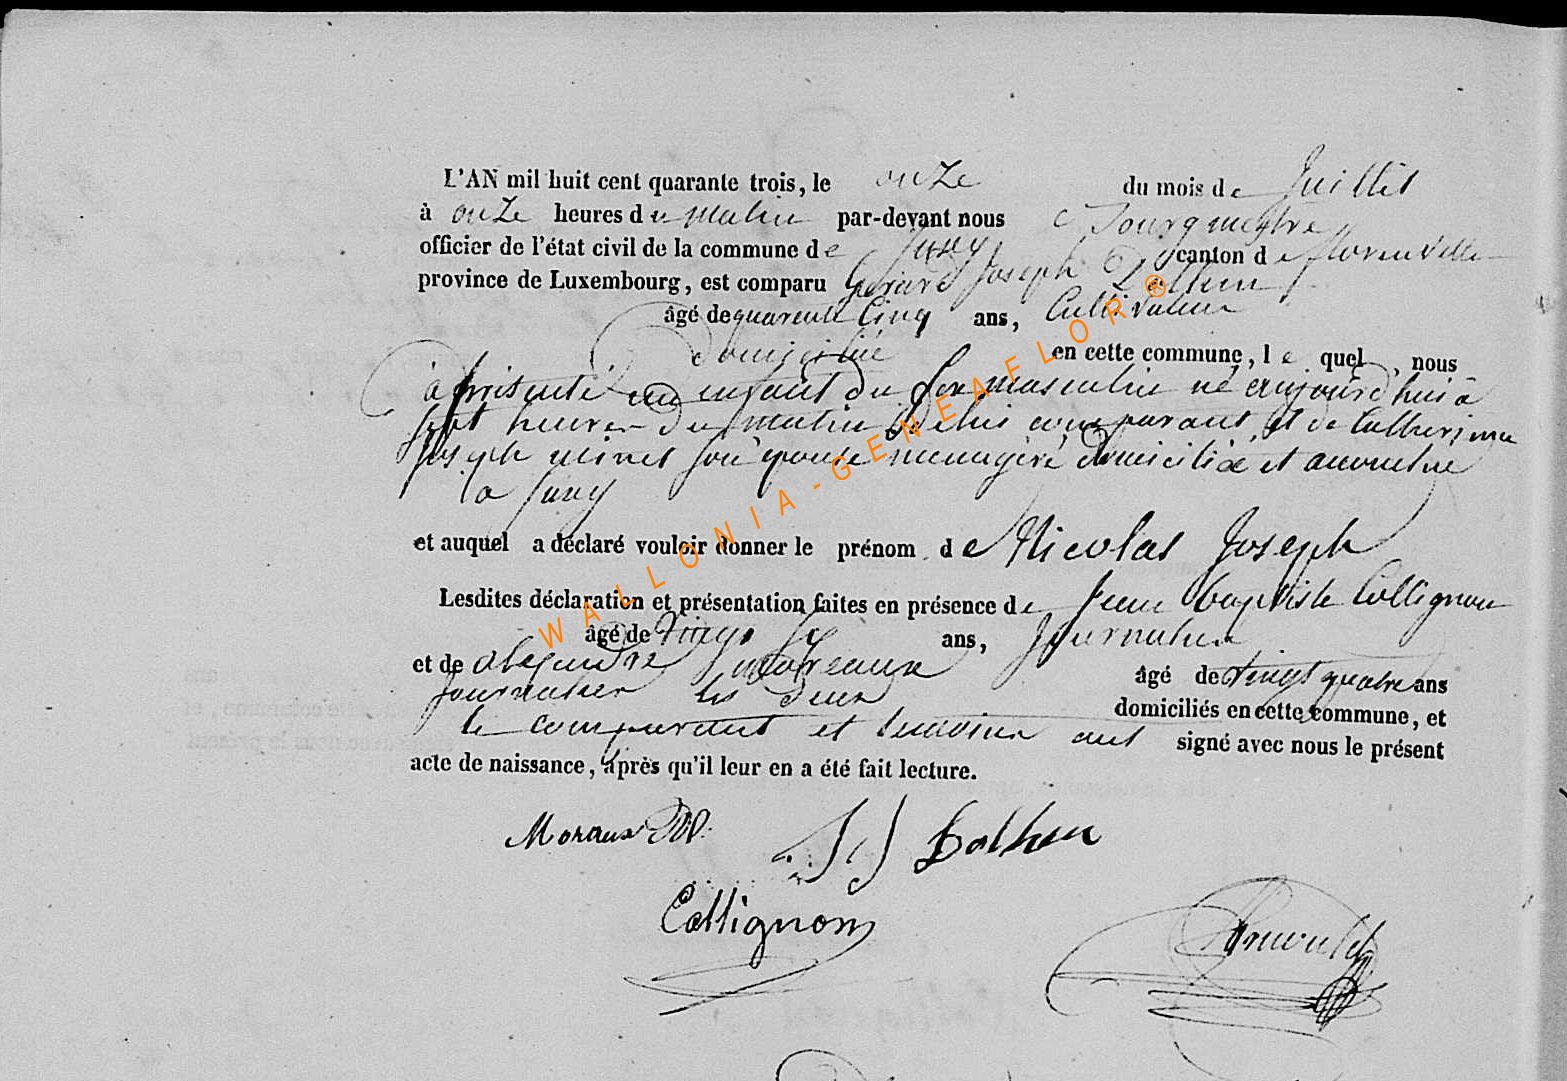 L'AN mil huit cent quarante trois, le onze du mois de Juillet
à onze heures du matin par-devant nous Bourgmestre
officier de l'état civil de la commune de canton de florenville
province de Luxembourg, est comparu Gérard Joseph
âgé de quarente Cinq ans, Cultivateur
domicilié en cette commune, le quel, nous
à présenté un enfant du sexe masculin né aujourd'hui à
sept heures du matin de lui comparant et de Catherine
Joseph son épouse menagère domiciliée et accouchée
à
et auquel a déclaré vouloir donner le prénom de Nicolas Joseph
Lesdites déclaration et présentation faites en présence de Jean baptiste Collignon
âgé de vingt ans, Journalier
et de moreaux âgé de vingt quatre ans
Journalier les deux domiciliés en cette commune, et
le comparant et temoins ont signé avec nous le présent
acte de naissance, après qu'il leur en a été fait lecture.
Moraux
Collignon
WALLONIA-GENEAFLOR®